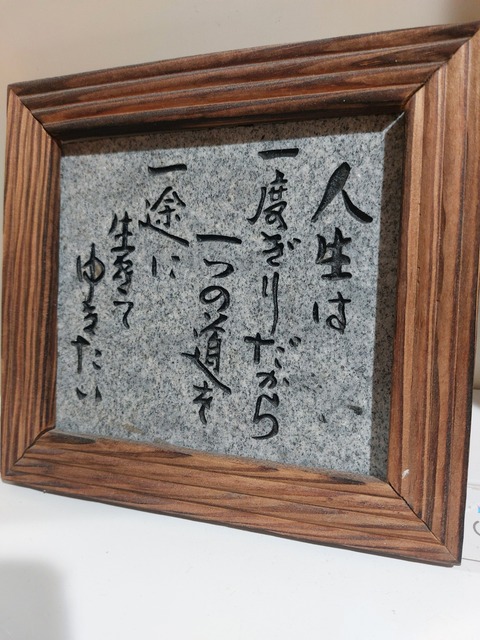 人生は
一度ぎりだから
一つの道を
一途に
生きて
ゆきたい